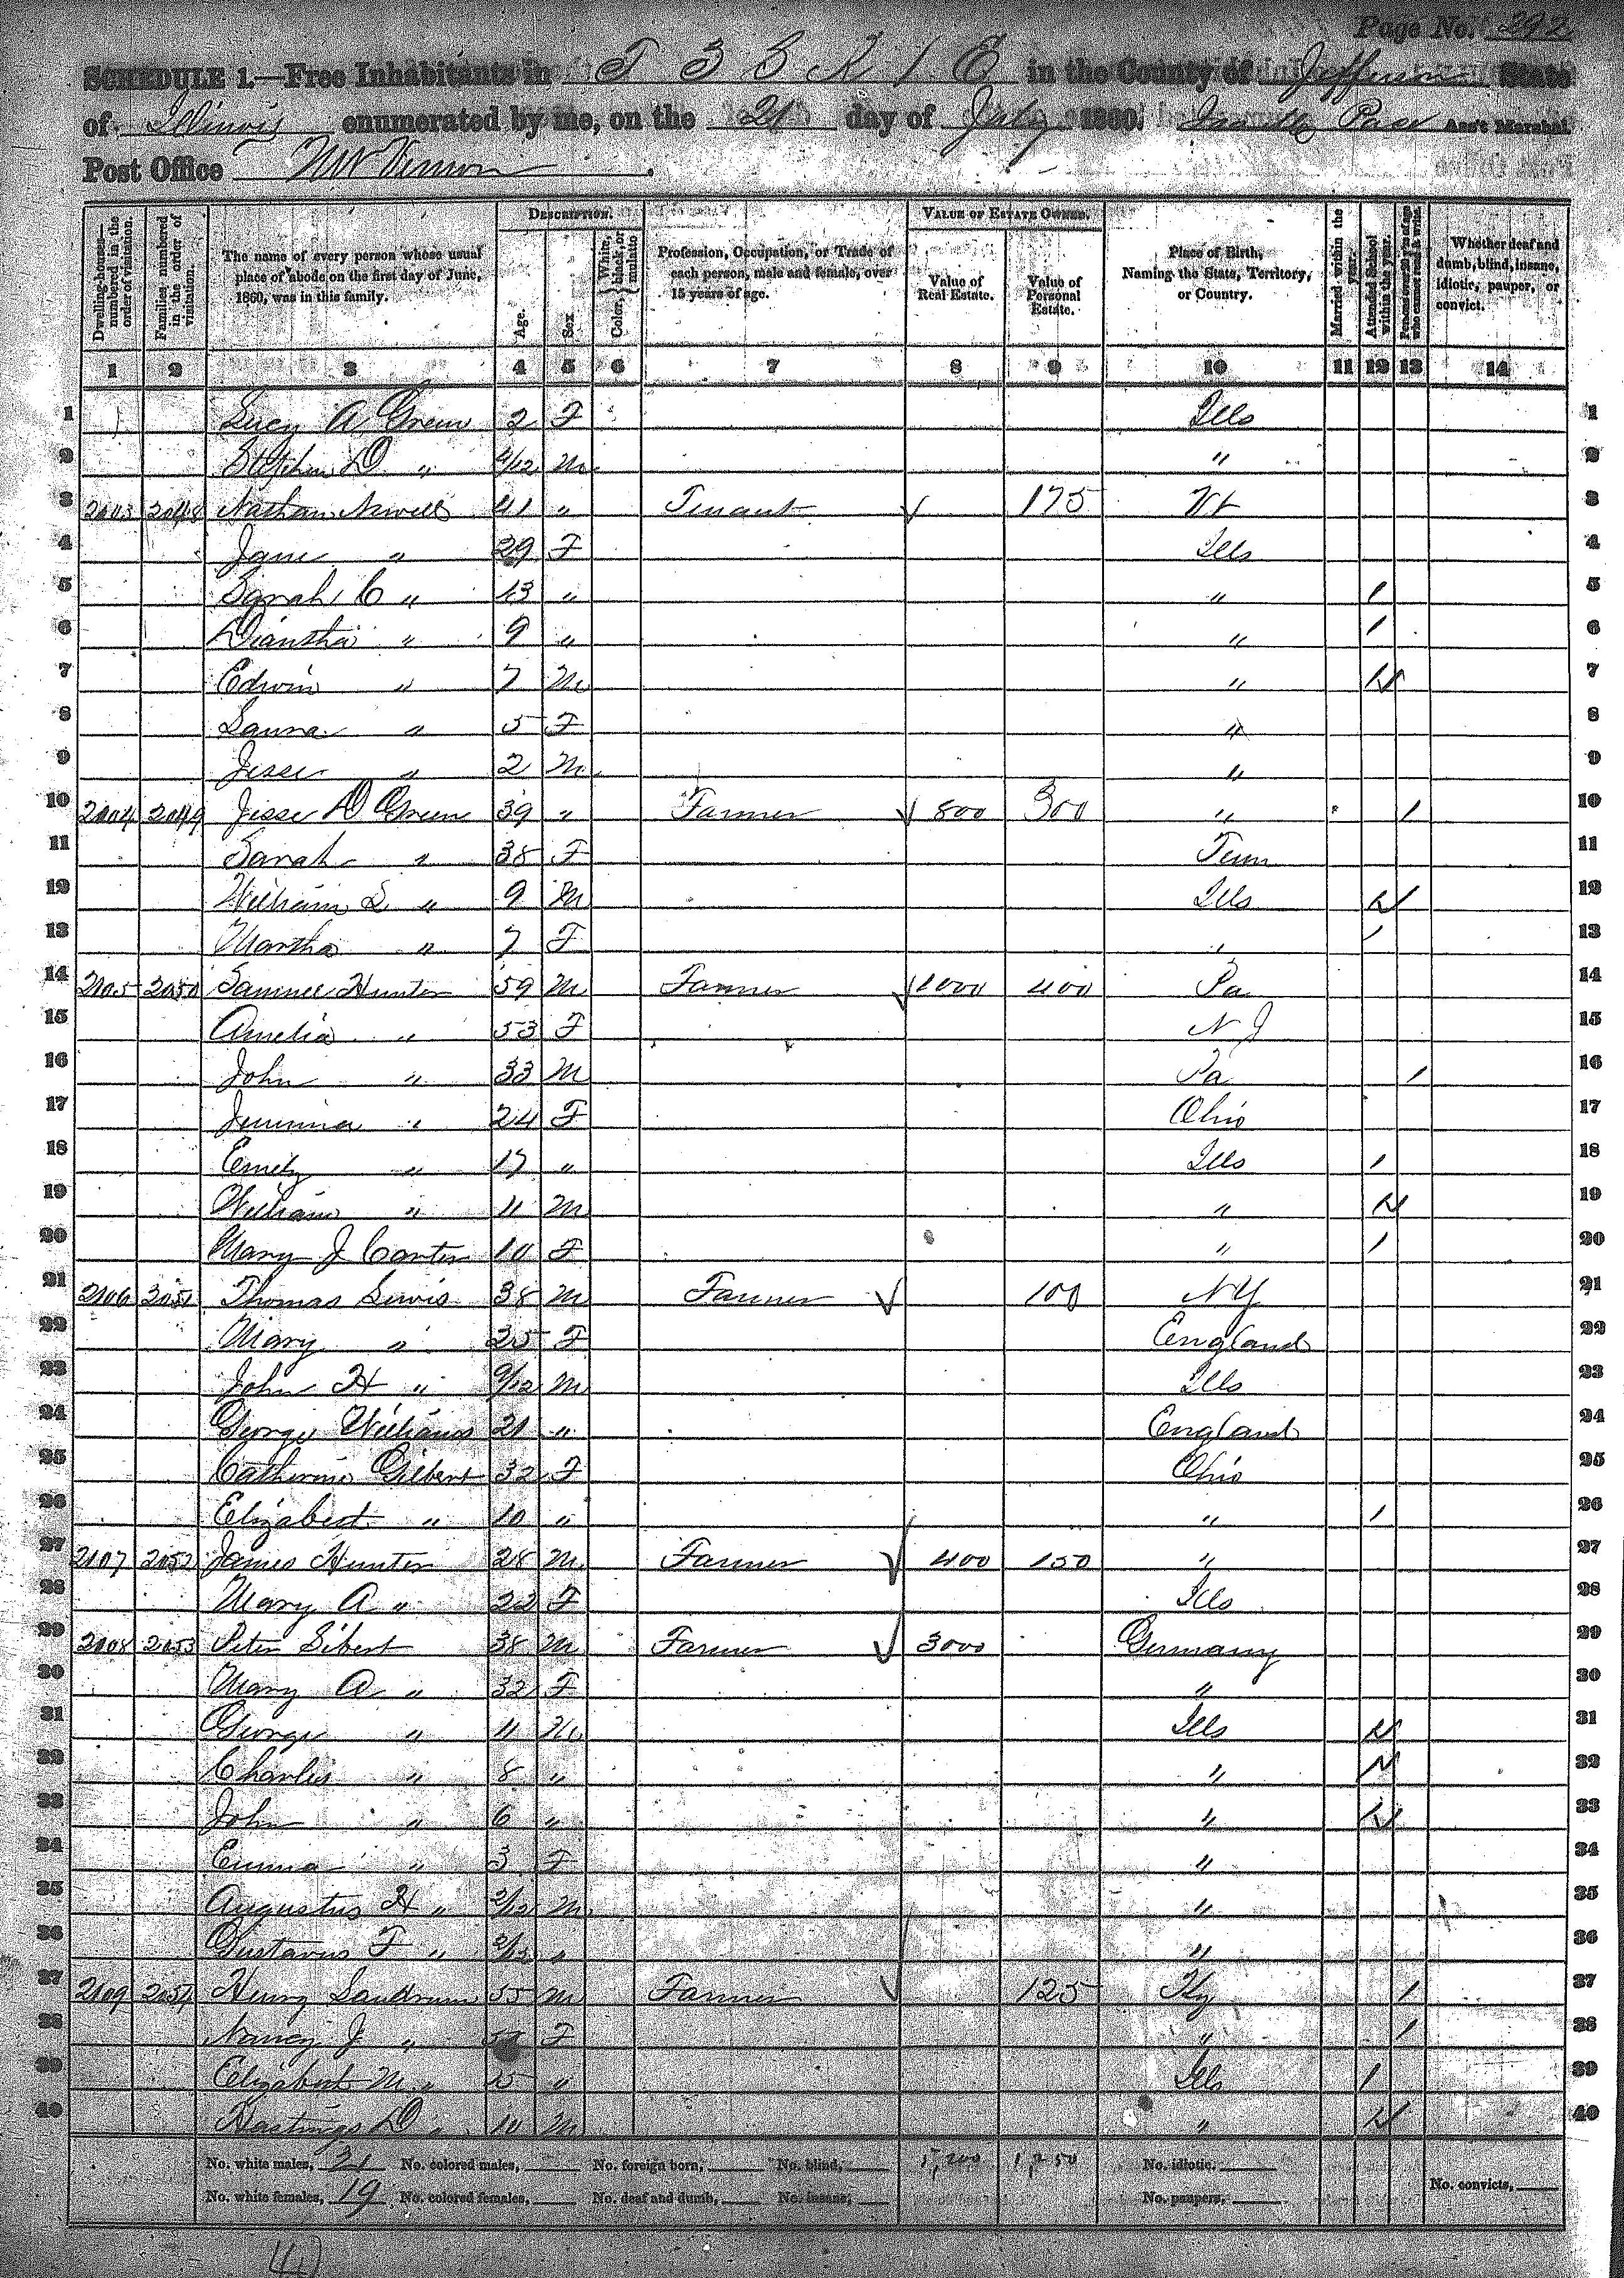 Page No. 292
SCHEDULE 1.—Free Inhabitants in T 3 S R 1 E in the County of Jefferson State
of Illinois enumerated by me, on the 21 day of July 1860. Pace Ass't Marshal.
Post Office Mt Vernon
Dwelling-houses—numbered in the order of visitation. Families numbered in the order of visitation. The name of every person whose usual place of abode on the first day of June, 1860, was in this family. DESCRIPTION. Age. Sex. Color, White, black, or mulatto Profession, Occupation, or Trade of each person, male and female, over 15 years of age. VALUE OF ESTATE OWNED. Value of Real Estate. Value of Personal Estate. Place of Birth, Naming the State, Territory, or Country. Married within the year. Attended School within the year. Persons over 20 y'rs of age who cannot read & write. Whether deaf and dumb, blind, insane, idiotic, pauper, or convict.
1 2 3 4 5 6 7 8 9 10 11 12 13 14
1 Lucy A Green 2 F Ills 1
2 Stephen D " 4/12 M " 2
3 2103 2048 Nathan Newell 41 " Tenant 175 Vt 3
4 Jane " 29 F Ills 4
5 Sarah C " 13 " " / 5
6 Diantha " 9 " " / 6
7 Edwin " 7 M " 7
8 Laura " 5 F " 8
9 Jesse " 2 M " 9
10 2104 2049 Jesse D Green 39 " Farmer 800 300 " / 10
11 Sarah " 38 F Tenn 11
12 William L " 9 M Ills 12
13 Martha " 7 F " / 13
14 2105 2050 Samuel Hunter 59 M Farmer 1000 400 Pa 14
15 Amelia " 53 F N J 15
16 John " 33 M Pa / 16
17 Jemima " 24 F Ohio 17
18 Emely " 17 " Ills / 18
19 William " 11 M " 19
20 Mary J Carter 10 F " / 20
21 2106 2051 Thomas Lewis 38 M Farmer 100 NY 21
22 Mary " 25 F England 22
23 John H " 9/12 M Ills 23
24 George Williams 21 " England 24
25 Catherine Gilbert 32 F Ohio 25
26 Elizabeth " 10 " " / 26
27 2107 2052 James Hunter 28 M Farmer 400 150 " 27
28 Mary A " 22 F Ills 28
29 2108 2053 Peter Sibert 38 M Farmer 3000 Germany 29
30 Mary A " 32 F " 30
31 George " 11 M Ills 31
32 Charles " 8 " " 32
33 John " 6 " " 33
34 Emma " 3 F " 34
35 Augustus H " 2/12 M " 35
36 Gustavus F " 2/12 " " 36
37 2109 2054 Henry 55 M Farmer 125 Ky / 37
38 Nancy J " F " / 38
39 Elizabeth M " 15 " Ills / 39
40 Hastings D " 10 M " 40
No. white males, 21 No. colored males, No. foreign born, No. blind, 5,200 1,250 No. idiotic.
No. white females, 19 No. colored females, No. deaf and dumb, No. insane, No. paupers, No. convicts,